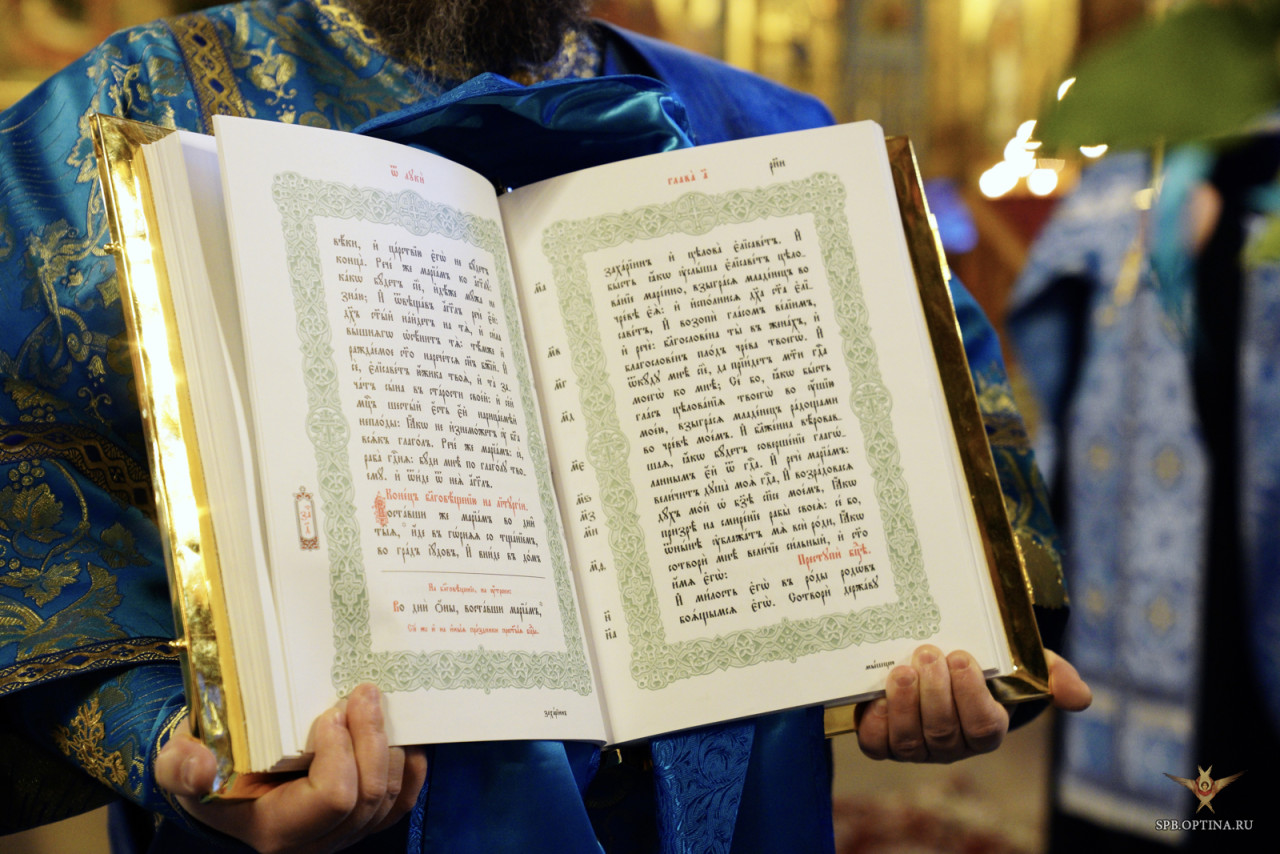 ѿ лꙋкѝ
вѣ́ки, и҆ црⷭ҇твїю є҆гѡ̀ не бꙋ́детъ
конца̀. Рече́ же мр҃їа́мь ко а҆́гг҃лꙋ:
ка́кѡ бꙋ́детъ сїѐ, и҆дѣ́же мꙋ́жа не
зна́ю; И҆ ѿвѣща́въ а҆́гг҃лъ речѐ є҆́й:
дх҃ъ ст҃ы́й на́йдетъ на тѧ̀, и҆ си́ла
вы́шнѧгѡ ѡ҆сѣни́тъ тѧ̀: тѣ́мже и҆
ражда́емое ст҃о нарече́тсѧ сн҃ъ бж҃їй. И҆
сѐ, є҆лїсаве́тъ ю҆́жика твоѧ̀, и҆ та̀ за-
ча́тъ сы́на въ ста́рости свое́й: и҆ се́й
мц҃ъ шесты́й є҆́сть є҆́й нарица́емѣй
непло́ды: ꙗ҆́кѡ не и҆знемо́жетъ ᲂу҆ бг҃а
всѧ́къ глаго́лъ. Рече́ же мр҃їа́мь: сѐ,
раба̀ гдⷭ҇нѧ: бꙋ́ди мнѣ̀ по глаго́лꙋ тво-
емꙋ̀. и҆ ѿи́де ѿ неѧ̀ а҆́гг҃лъ.
Коне́цъ бл҃говѣ́щенїю на лїтꙋргі́и.
Воста́вши же мр҃їа́мь во дни̑
ты̑ѧ, и҆́де въ гѡ́рнѧѧ со тща́нїемъ,
во гра́дъ і҆ꙋ́довъ, И҆ вни́де въ до́мъ
На бл҃говѣ́щенїе, на ᲂу҆́трени:
Во дни̑ ѻ҆́ны, воста́вши мр҃їа́мь,
Сїе́ же и҆ на и҆ны̑ѧ пра́здники прест҃ы́ѧ бцⷣы.
заха́рїинъ
глава̀ а҃
захарі́инъ и҆ цѣлова̀ є҆лїсаве́ть. И҆
бы́сть ꙗ҆́кѡ ᲂу҆слы́ша є҆лїсаве́ть цѣло-
ва́нїе мр҃їино, взыгра́сѧ младе́нецъ во
чре́вѣ є҆ѧ̀: и҆ и҆спо́лнисѧ дх҃а ст҃а є҆лї-
саве́ть, И҆ возопѝ гла́сомъ ве́лїимъ,
и҆ речѐ: благослове́на ты̀ въ жена́хъ, и҆
благослове́нъ пло́дъ чре́ва твоегѡ̀. И҆
ѿкꙋ́дꙋ мнѣ̀ сїѐ, да прїи́детъ мт҃и гдⷭ҇а
моегѡ̀ ко мнѣ̀; Се́ бо, ꙗ҆́кѡ бы́сть
гла́съ цѣлова́нїѧ твоегѡ̀ во ᲂу҆́шїю
мое́ю, взыгра́сѧ младе́нецъ ра́дощами
во чре́вѣ мое́мъ. И҆ блаже́нна вѣ́ровав-
шаѧ, ꙗ҆́кѡ бꙋ́детъ соверше́нїе глаго́-
ланнымъ є҆́й ѿ гдⷭ҇а. И҆ речѐ мр҃їа́мь:
вели́читъ дꙋша̀ моѧ̀ гдⷭ҇а, И҆ возра́довасѧ
дꙋ́хъ мо́й ѡ҆ бз҃ѣ сп҃сѣ мое́мъ, Ꙗ҆́кѡ
призрѣ̀ на смире́нїе рабы̀ своеѧ̀: се́ бо,
ѿны́нѣ ᲂу҆блажа́тъ мѧ̀ всѝ ро́ди, Ꙗ҆́кѡ
сотворѝ мнѣ̀ вели́чїе си́льный, и҆ ст҃о
и҆́мѧ є҆гѡ̀:
Престꙋпѝ бцⷣѣ.
И҆ ми́лость є҆гѡ̀ въ ро́ды родѡ́въ
боѧ́щымсѧ є҆гѡ̀. Сотворѝ держа́вꙋ
мы́шцею
SPB.OPTINA.RU